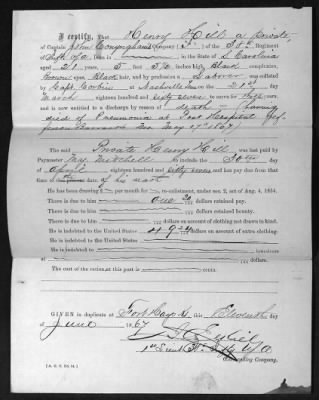 I certify, That Henry Hill a private,
of Captain John Conyngham's Company ( ) of the 38th Regiment
of Inft'y was born in in the State of S Carolina
aged 21 years, 5 feet 5¾ inches high, Black complexion,
Brown eyes, Black hair, and by profession a Laborer was enlisted
by Capt Corbin at Nashville Tenn on the 21st day
March eighteen hundred and sixty seven to serve for three years,
and is now entitled to a discharge by reason of death — having
died of Pneumonia at Post Hospital Jef-
ferson Barracks Mo May 17th 1867.
The said Private Henry Hill was last paid by
Paymaster Maj Mitchell to include the 30th day of
April eighteen hundred and sixty seven, and has pay due from that
time of his death
He has been drawing $ per month for re-enlistment, under sec. 2, act of Aug. 4, 1854.
There is due to him one dollars retained pay.
There is due to him dollars bounty.
There is due to him dollars on account of clothing not drawn in kind.
He is indebted to the United States dollars on account of extra clothing.
He is indebted to the United States
He is indebted to
at dollars.
The cost of the ration at this post is cents.
GIVEN in duplicate at Fort Hays Ks this Eleventh
day of June 1867
1st Lieut 38th Inf'y U S A
Commanding Company.
[A. G. O. No. 94.]